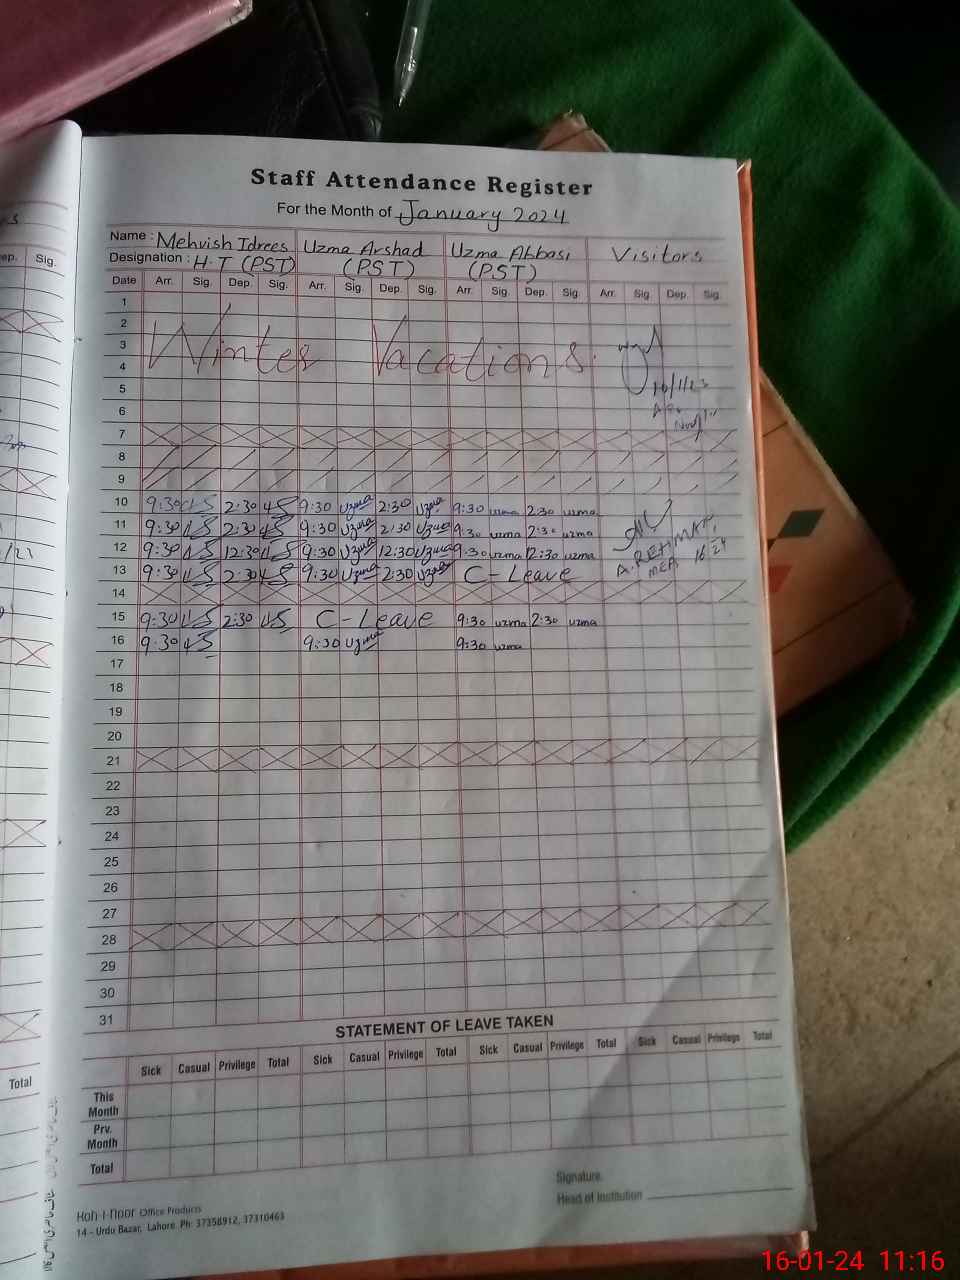 Staff Attendance Register
For the Month of January 2024
Name : Mehvish Idrees Uzma Arshad Uzma Abbasi Visitors
Designation : H.T (PST) (PST) (PST)
Date Arr. Sig. Dep. Sig. Arr. Sig. Dep. Sig. Arr. Sig. Dep. Sig. Arr. Sig. Dep. Sig.
1
2
3
Winter Vacations.
4
5
6
7
8
9
10 9:30 2:30 9:30 Uzma 2:30 Uzma 9:30 uzma 2:30 uzma
11 9:30 2:30 9:30 Uzma 2:30 Uzma 9:30 uzma 2:30 uzma
12 9:30 12:30 9:30 Uzma 12:30 Uzma 9:30 uzma 12:30 uzma
13 9:30 2:30 9:30 Uzma 2:30 Uzma C-Leave
A. REHMAN
14
15 9:30 2:30 C-Leave 9:30 uzma 2:30 uzma
16 9:30 9:30 Uzma 9:30 uzma
17
18
19
20
21
22
23
24
25
26
27
28
29
30
31
STATEMENT OF LEAVE TAKEN
Sick Casual Privilege Total Sick Casual Privilege Total Sick Casual Privilege Total Sick Casual Privilege Total
This Month
Prv. Month
Total
Signature.
Head of Institution
Koh-i-noor Office Products
14 - Urdu Bazar, Lahore. Ph: 37358912, 37310463
ep. Sig.
Total
16-01-24 11:16